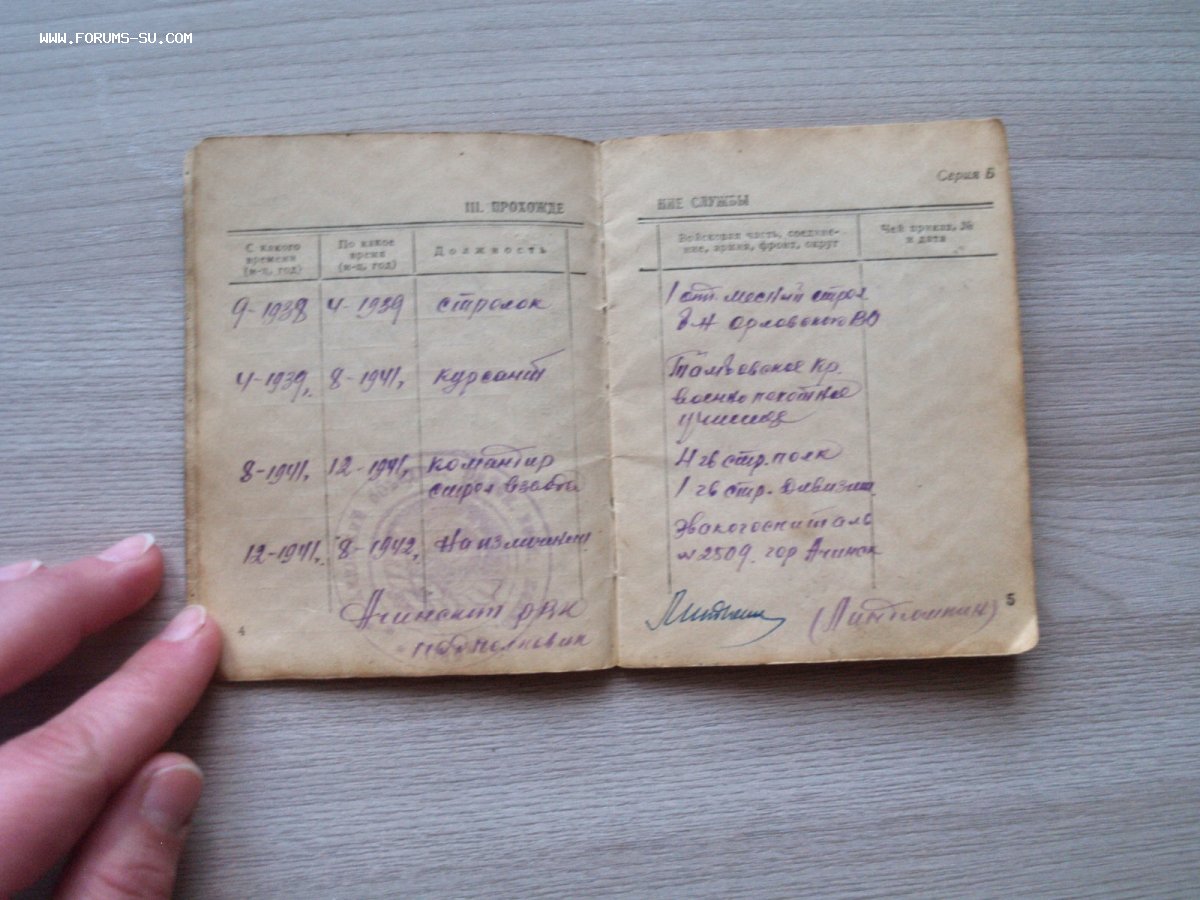 WWW.FORUMS-SU.COM
Серия Б
III. ПРОХОЖДЕ НИЕ СЛУЖБЫ
С какого времени (м-ц, год)
По какое время (м-ц, год)
Должность
Войсковая часть, соединение, армия, фронт, округ
Чей приказ, № и дата
9-1938 4-1939 стрелок
1 отд. местный стрел
б-н Орловского ВО
4-1939г. 8-1941г. курсант
Тамбовское кр.
военно пехотное
училище
8-1941г. 12-1941г. командир
стрел взвода
4 гв стр. полк
1 гв стр. Дивизии
12-1941г. 8-1942г. На излечении
Эвакогоспиталь
№ 2509. гор Ачинск
Ачинский РВК
подполковник
4
5